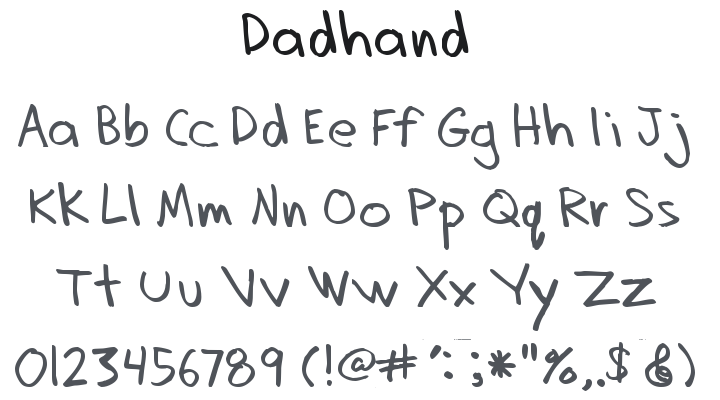 Dadhand
Aa Bb Cc Dd Ee Ff Gg Hh Ii Jj
Kk Ll Mm Nn Oo Pp Qq Rr Ss
Tt Uu Vv Ww Xx Yy Zz
0123456789 (!@#':;*"%,.$&)